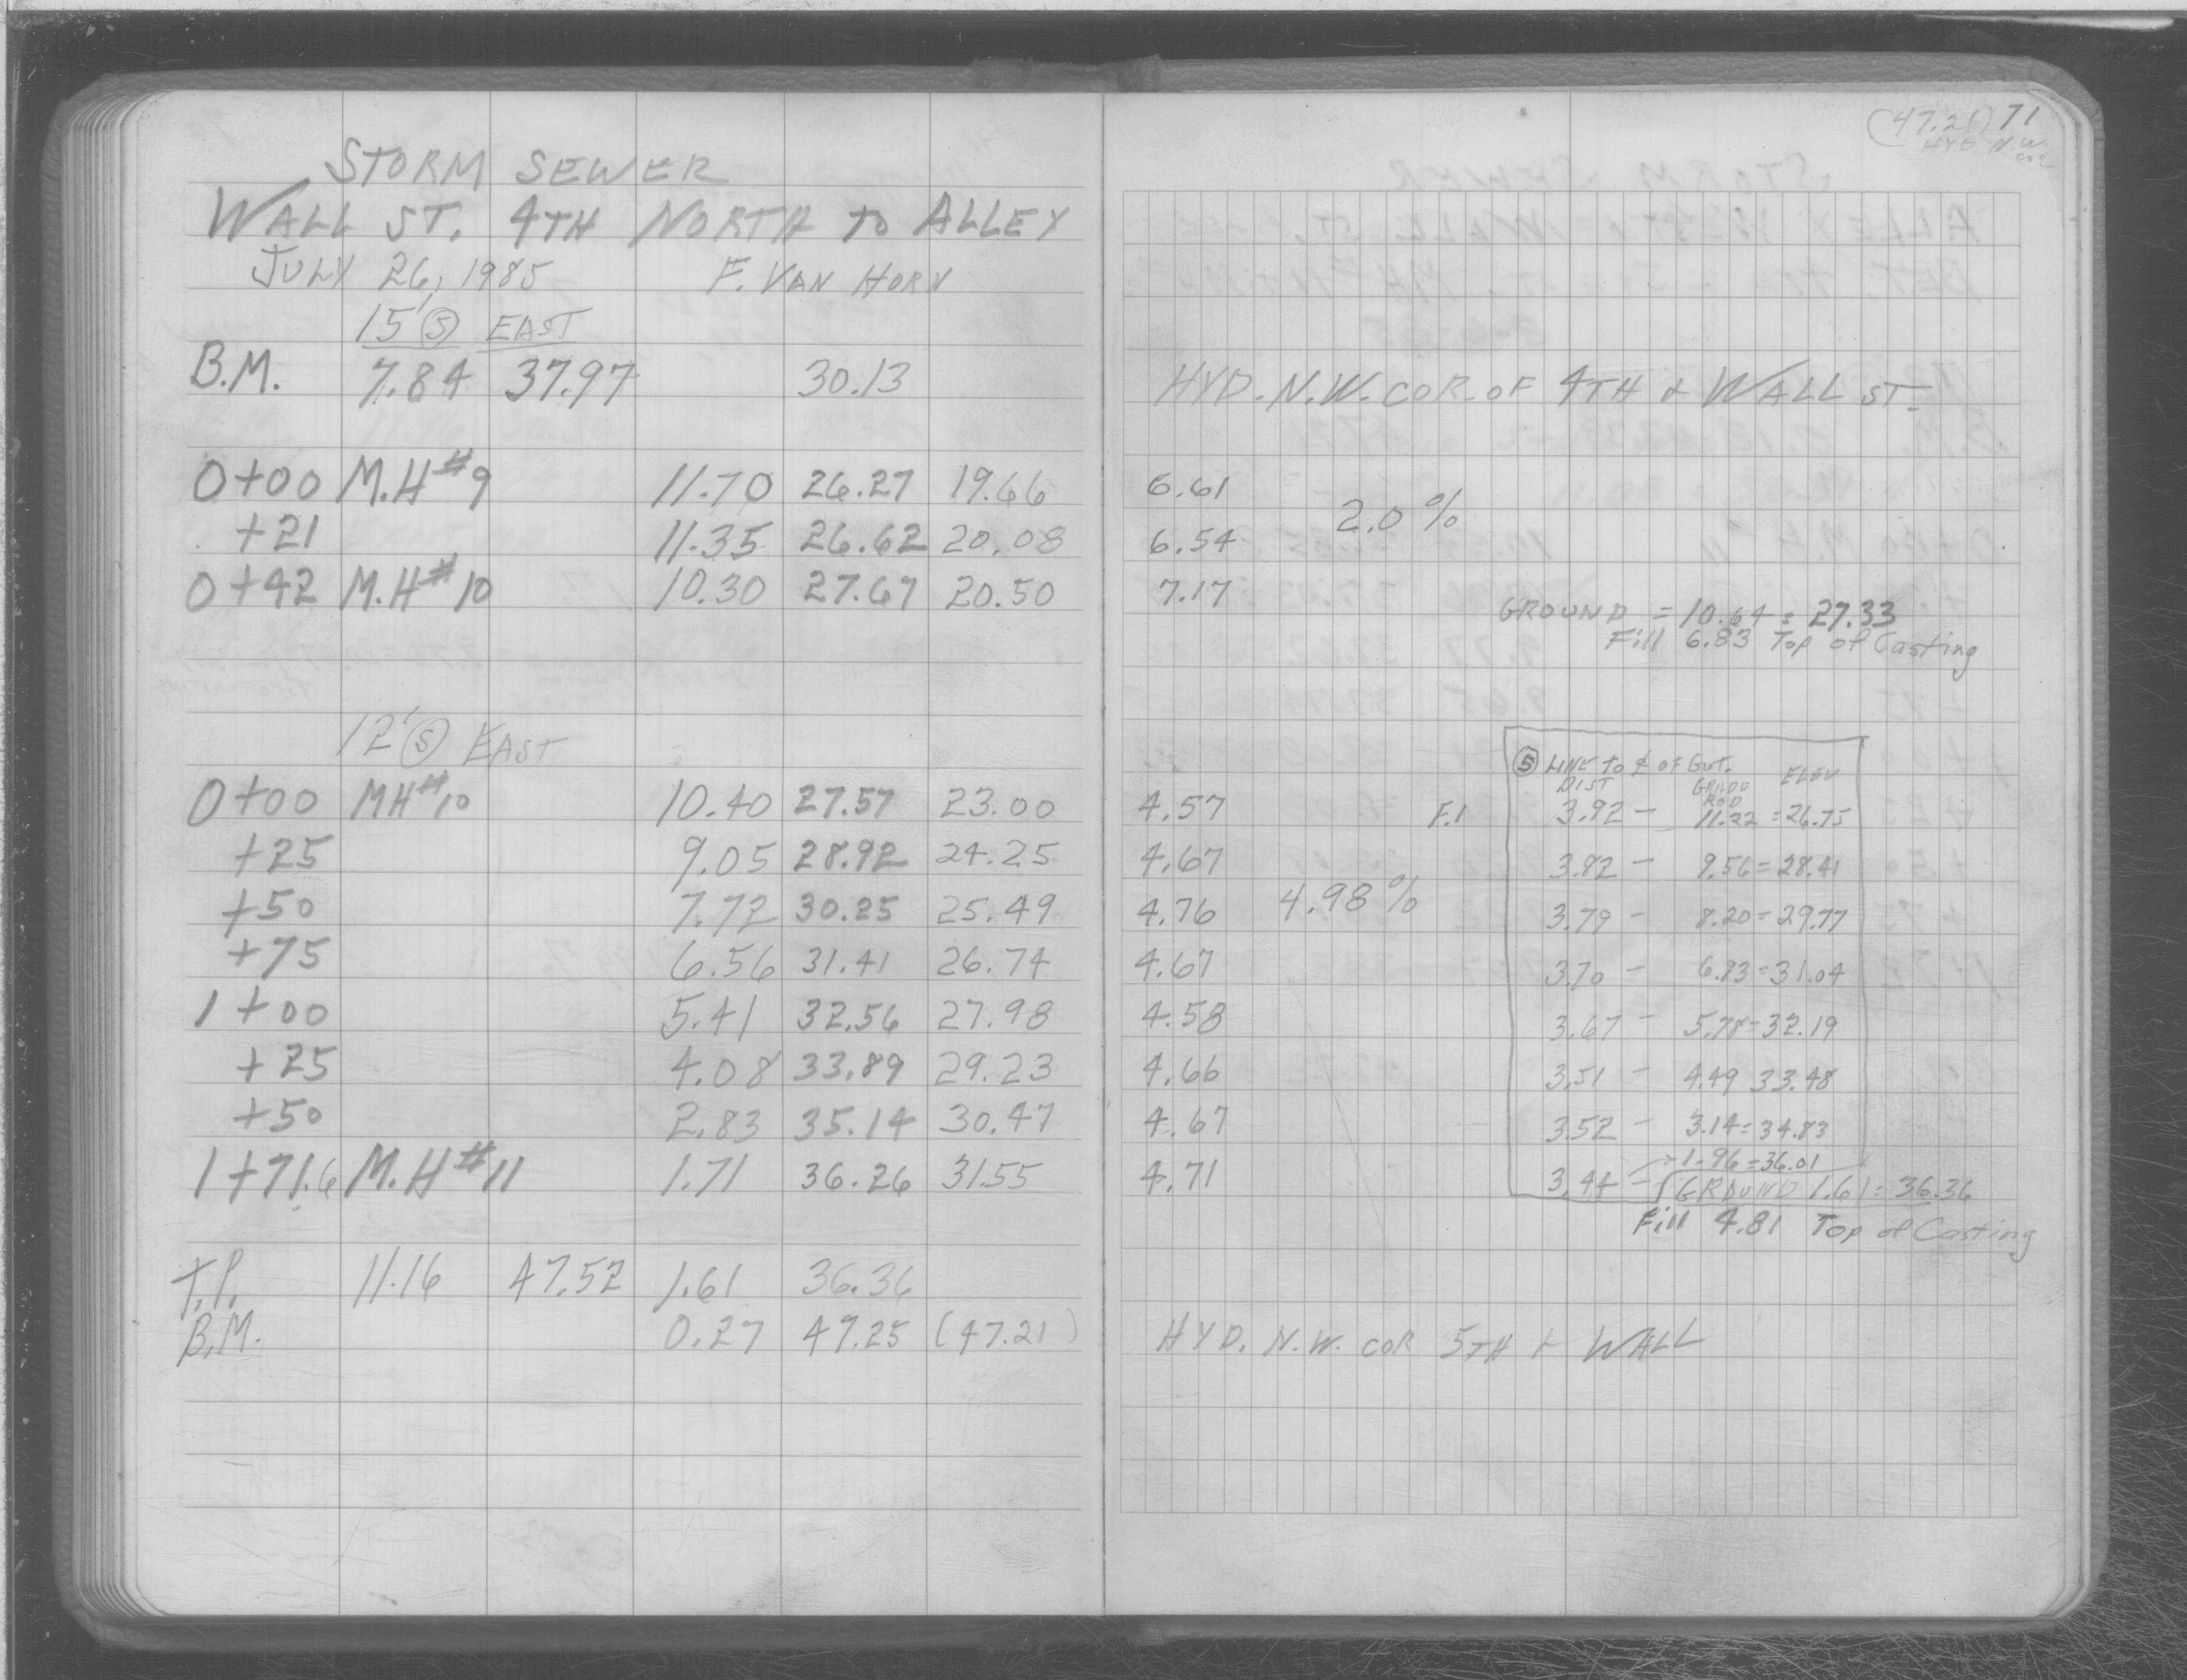 STORM SEWER
WALL ST. 4TH NORTH TO ALLEY
JULY 26, 1985 F. VAN HORN
15' Ⓢ EAST
B.M. 7.84 37.97 30.13
0+00 M.H#9 11.70 26.27 19.66
+21 11.35 26.62 20.08
0+42 M.H#10 10.30 27.67 20.50
12' Ⓢ EAST
0+00 MH#10 10.40 27.57 23.00
+25 9.05 28.92 24.25
+50 7.72 30.25 25.49
+75 6.56 31.41 26.74
1+00 5.41 32.56 27.98
+25 4.08 33.89 29.23
+50 2.83 35.14 30.47
1+71.6 M.H#11 1.71 36.26 31.55
T.P. 11.16 47.52 1.61 36.36
B.M. 0.27 47.25 (47.21)
(47.21) 71
HYD N.W.
COR
HYD. N.W. COR. OF 4TH & WALL ST.
6.61
2.0%
6.54
7.17
GROUND = 10.64 = 27.33
Fill 6.83 Top of Casting
Ⓢ LINE TO ⅊ OF GUT.
DIST GRADE ROD ELEV
4.57 F.1 3.92 - 11.22 = 26.75
4.67 3.82 - 9.56 = 28.41
4.76 4.98% 3.79 - 8.20 = 29.77
4.67 3.70 - 6.93 = 31.04
4.58 3.67 - 5.78 = 32.19
4.66 3.51 - 4.49 33.48
4.67 3.52 - 3.14 = 34.83
1.96 = 36.01
4.71 3.44 - GROUND 1.61 = 36.36
Fill 4.81 Top of Casting
HYD. N.W. COR 5TH & WALL